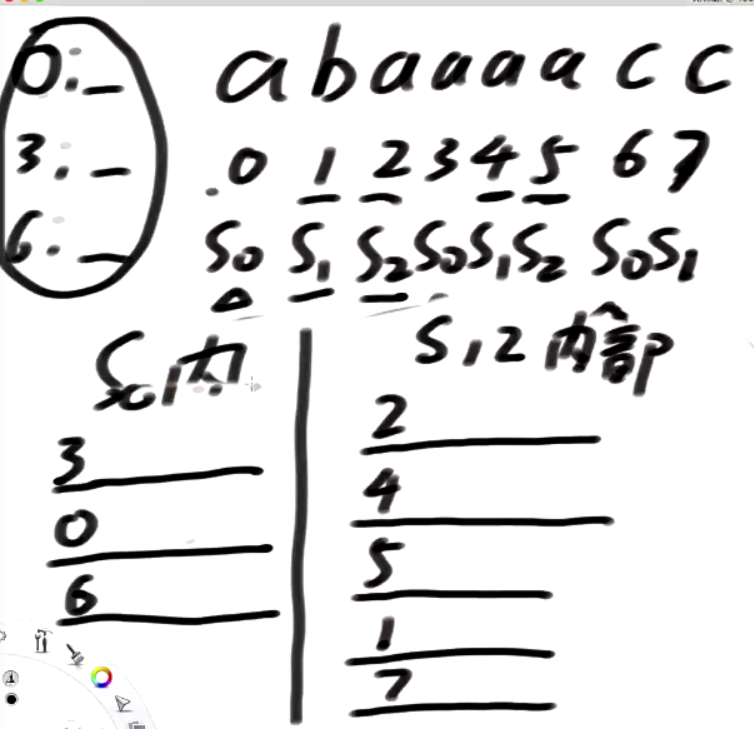 0:_
a b a a a a c c
3._
0 1 2 3 4 5 6 7
6._
S0 S1 S2 S0 S1 S2 S0 S1
S0内
S12内部
3
0
6
2
4
5
1
7